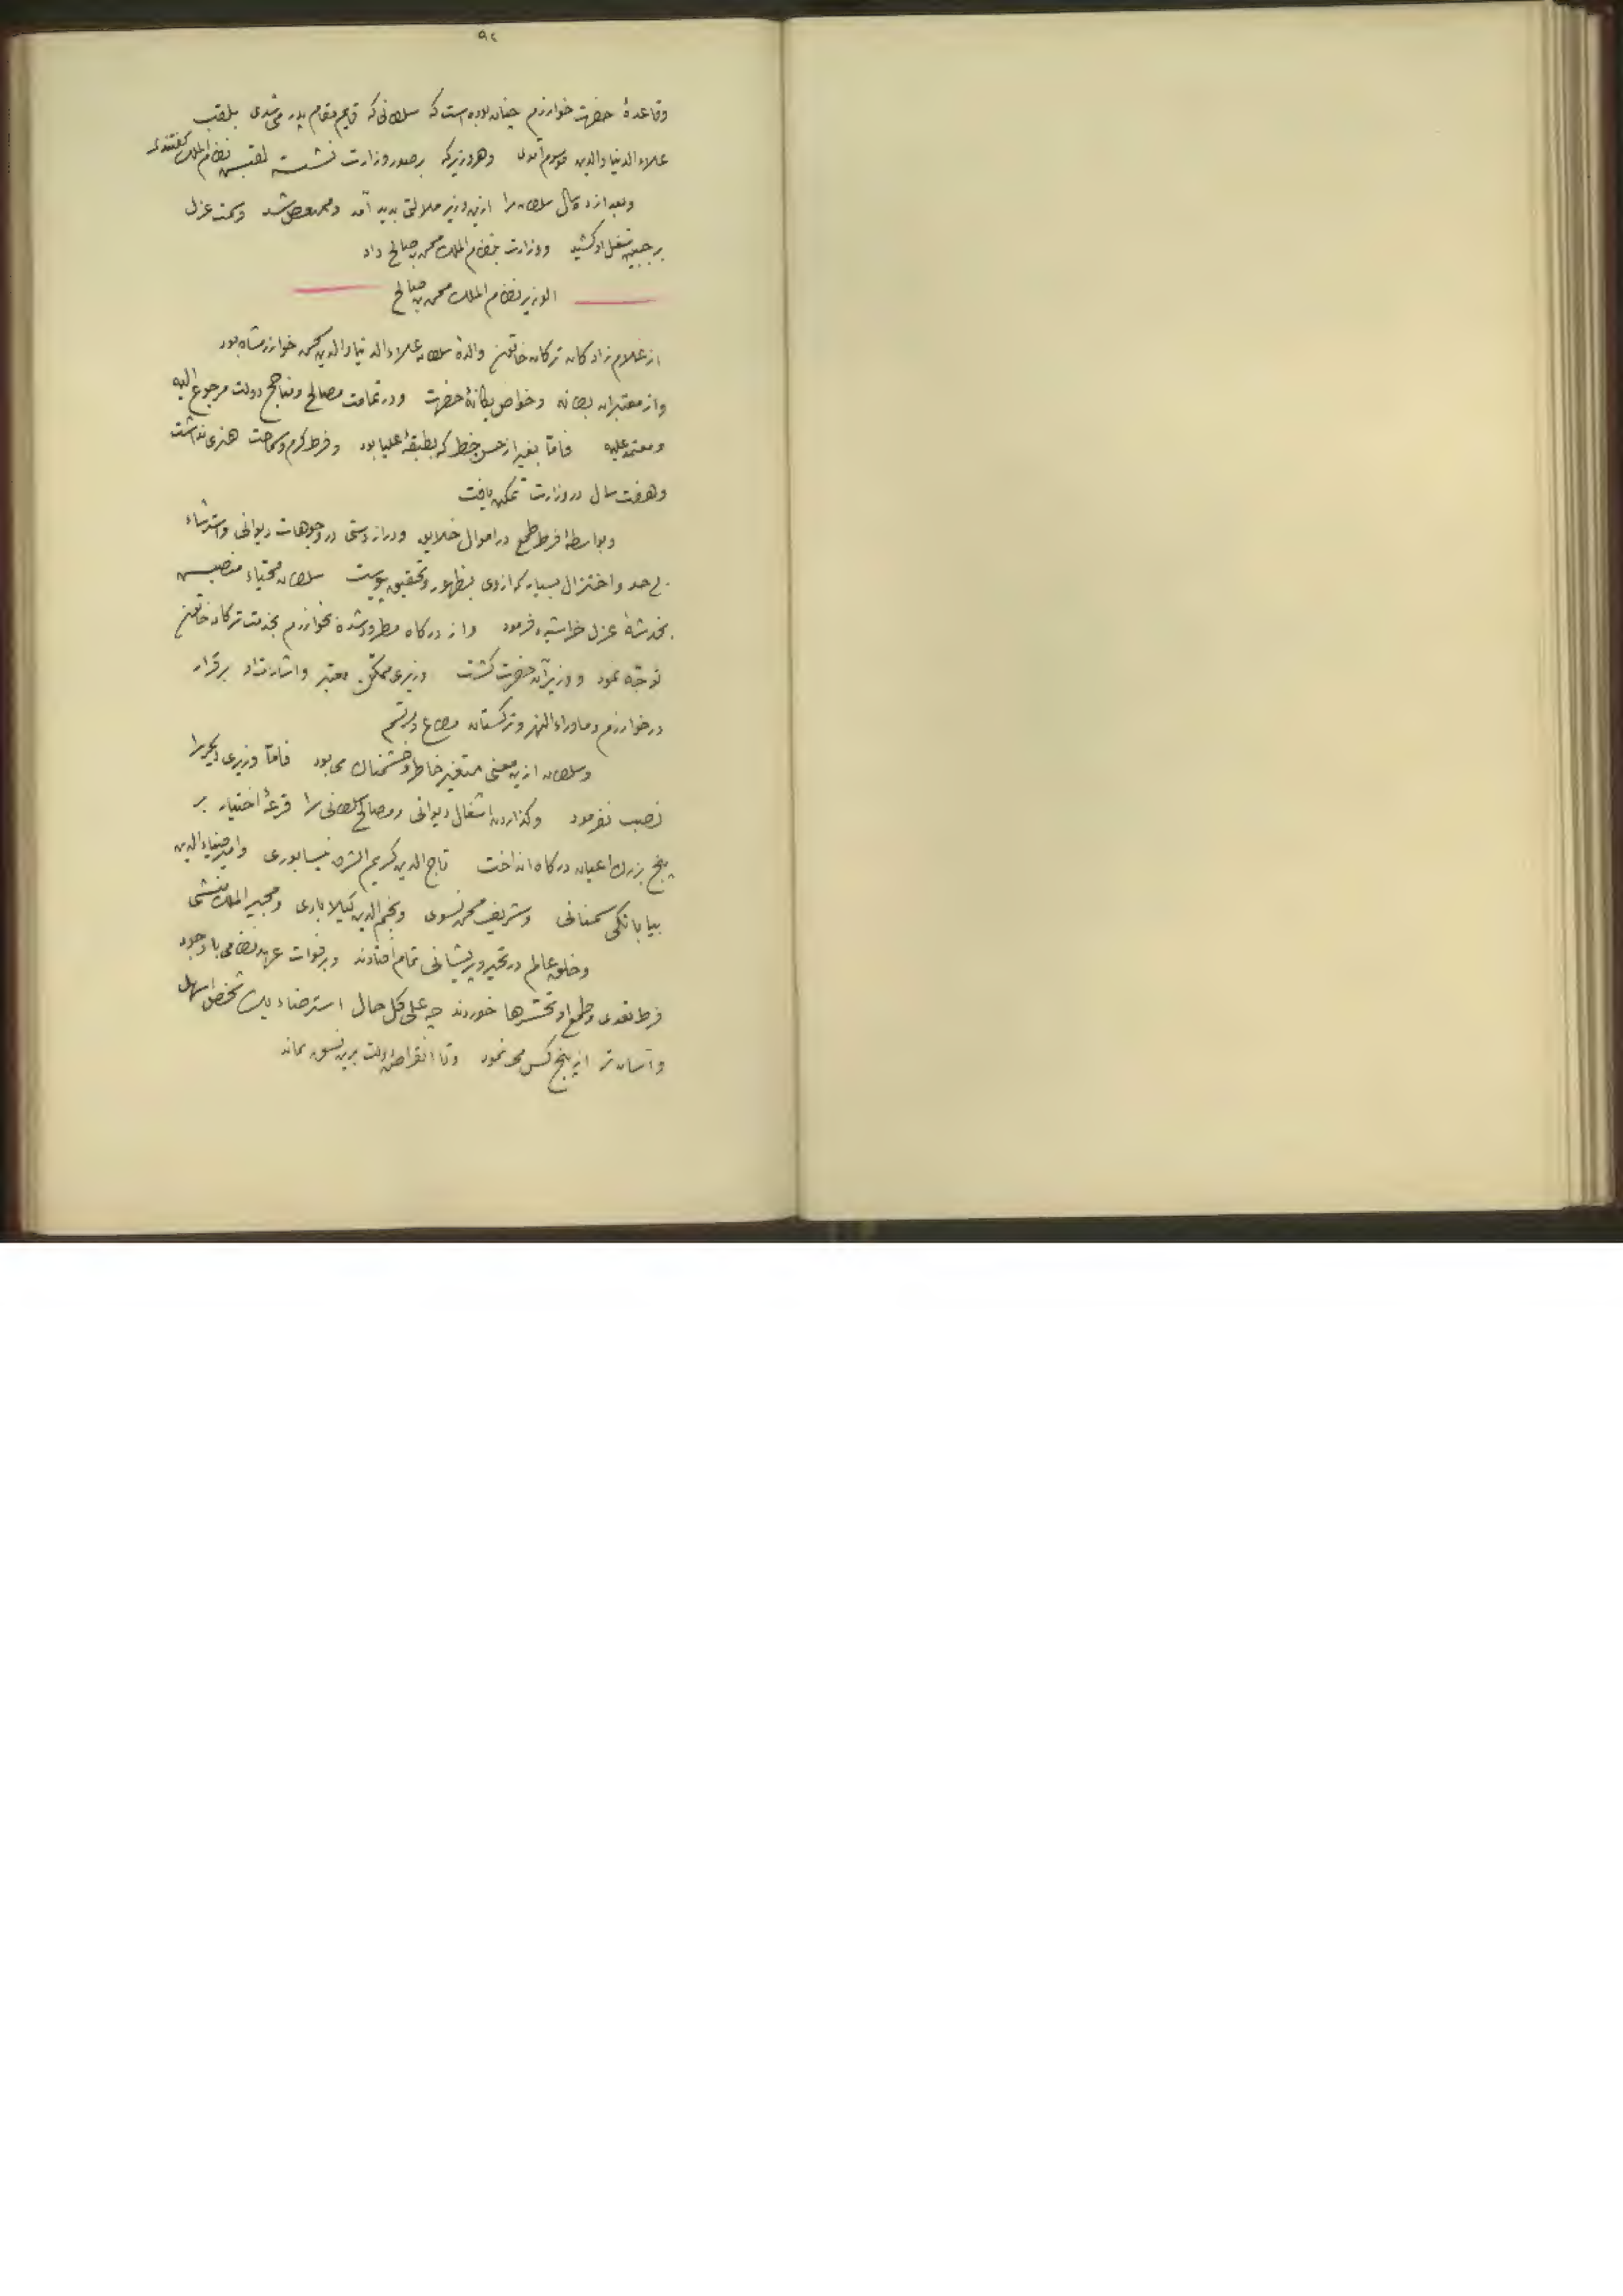 ۹۲
وقاعدۀ حضرت خوارزم چنان بوده است که سلطانی که قایم مقام پدر می شدی بلقب
علاء الدنیا والدین موسوم آمدی وهر وزیر که بر صدر وزارت نشست لقبش نظام الملک گفتندی
وبعد از دو سال سلطان را ازین وزیر ملالتی پدید آمد وسمت عزل
بر جبین شغل او کشید ووزارت بنظام الملک محمد بن صالح داد
الوزیر نظام الملک محمد بن صالح
از غلام زادکان ترکان خاتون والدۀ سلطان علاء الدنیا والدین محمد خوارزمشاه بود
واز معتبران بطانه وخواص یکانۀ حضرت ودر تمامت مصالح ومناجح دولت مرجوع الیه
ومعتمد علیه فامّا بغیر از حسن خط که بطبقۀ علیا بود وفرط کرم وسماحت هنری نداشت
وهفت سال در وزارت تمکن یافت
وبواسطۀ فرط طمع در اموال خلایق ودراز دستی در وجوهات دیوانی واسترشاء
بی حد واختزال بسیار که ازوی بظهور وتحقیق پیوست سلطان محیّاء منصبش
بخدشۀ عزل خراشیده فرمود واز درکاه مطرود شده بخوارزم بخدمت ترکان خاتون
توجّه نمود ووزیر آن حضرت کشت وزیری ممکّن معتبر واشارت او برقرار
در خوارزم وماوراء النهر وترکستان مطاع ومرتسم
وسلطان ازین معنی متغیر خاطر وخشمناک می بود فامّا وزیری دیگر را
نصب نفرمود وکذاردن اشغال دیوانی ومصالح سلطانی را قرعۀ اختیار بر
پنج بزرک اعیان درکاه انداخت تاج الدین کریم الشرق نیسابوری وامیر ضیاء الدین
بیابانکی سمنانی وشریف محمد نسوی ونجم الدین کیلابادی ومجیر الملک منشی
وخلق عالم در تحیر وپریشانی تمام افتادند وبر فوات عهد نظامی با وجود
فرط تعدی وطمع او تحسّرها خوردند چه علی کل حال استرضاء یک شخص اسهل
وآسان تر از پنج کس می نمود وتا انقراض دولت برین نسق بماند